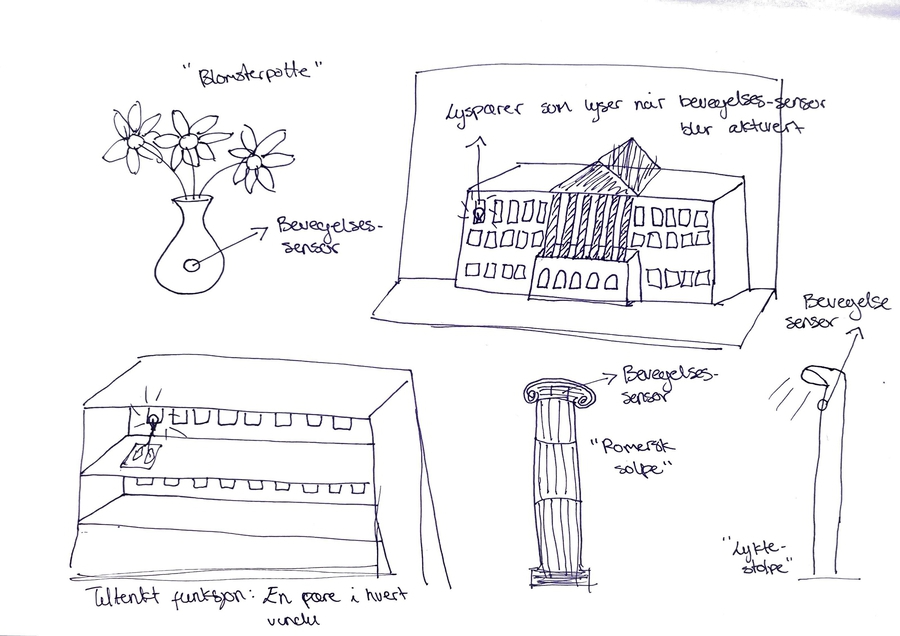 "Blomsterpotte"
Bevegelses-
sensor
Lyspærer som lyser når bevegelses-sensor
blir aktivert
Bevegelse
sensor
Bevegelses-
sensor
"Romersk
solpe"
"Lykte-
stolpe"
Tiltenkt funksjon: En pære i hvert
vindu